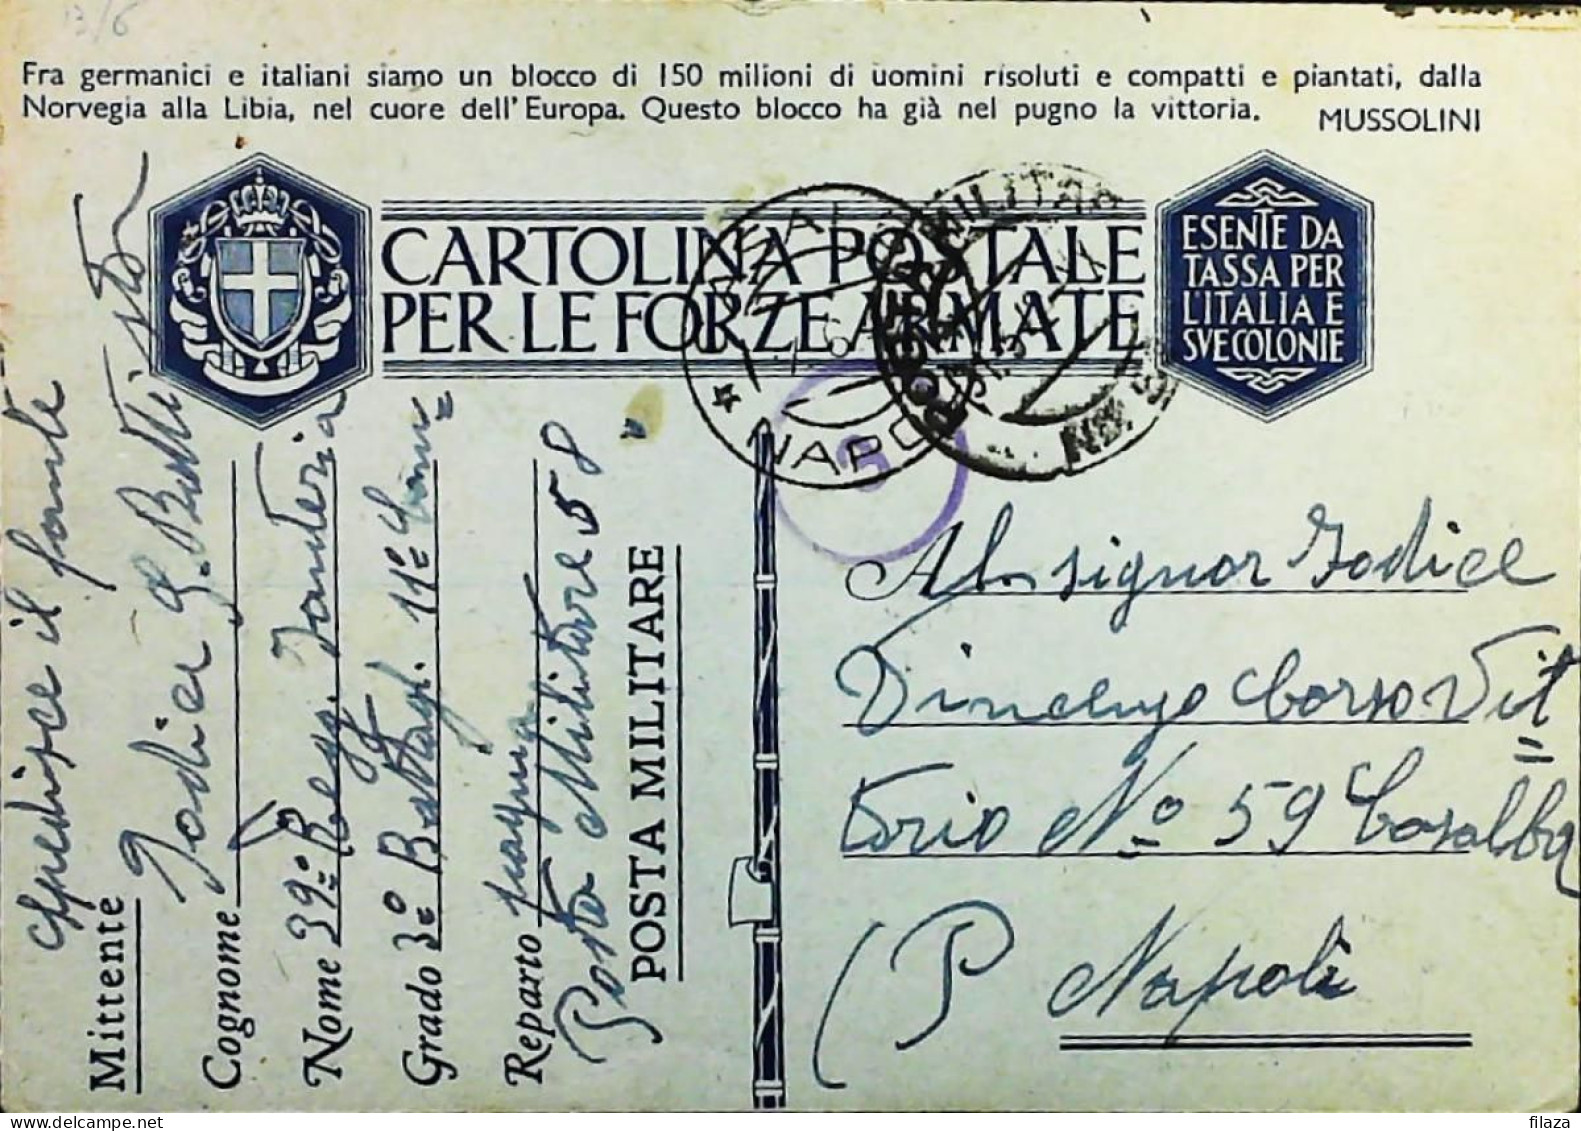 13/6
Fra germanici e italiani siamo un blocco di 150 milioni di uomini risoluti e compatti e piantati, dalla
Norvegia alla Libia, nel cuore dell'Europa. Questo blocco ha già nel pugno la vittoria.
MUSSOLINI
CARTOLINA POSTALE
PER LE FORZE ARMATE
ESENTE DA
TASSA PER
L'ITALIA E
SVE COLONIE
POSTA MILITARE
NAPO
3
Spedisce il fante
Mittente Iodice G. Battista
Cognome
Nome 39º Regg. Fanteria
Grado 3º Battagl. 11º Com=
Reparto pagnia
Posta Militare 58
POSTA MILITARE
Al signor Iodice
Vincenzo Corso Vit
torio Nº 59 Casalba
(P Napoli
filaza